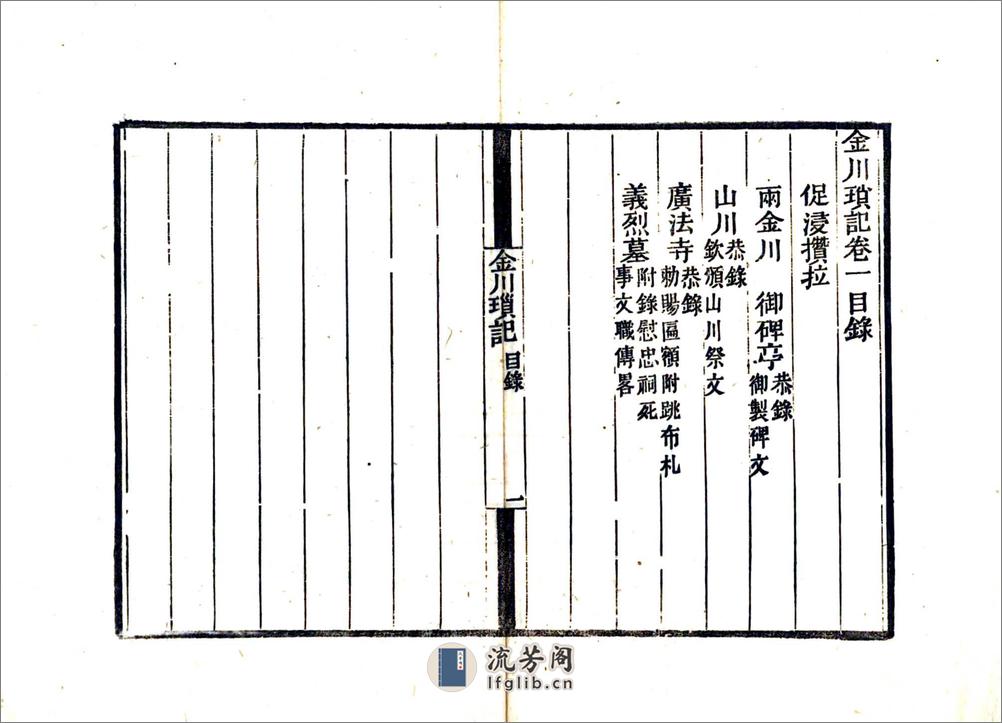 金川瑣記卷一目錄
促浸攢拉
兩金川 御碑亭恭錄御製碑文
山川恭錄欽頒山川祭文
廣法寺恭錄勅賜匾額附跳布札
義烈墓附錄慰忠祠死事文職傳畧
金川瑣記 目錄 一
流芳阁
lfglib.cn